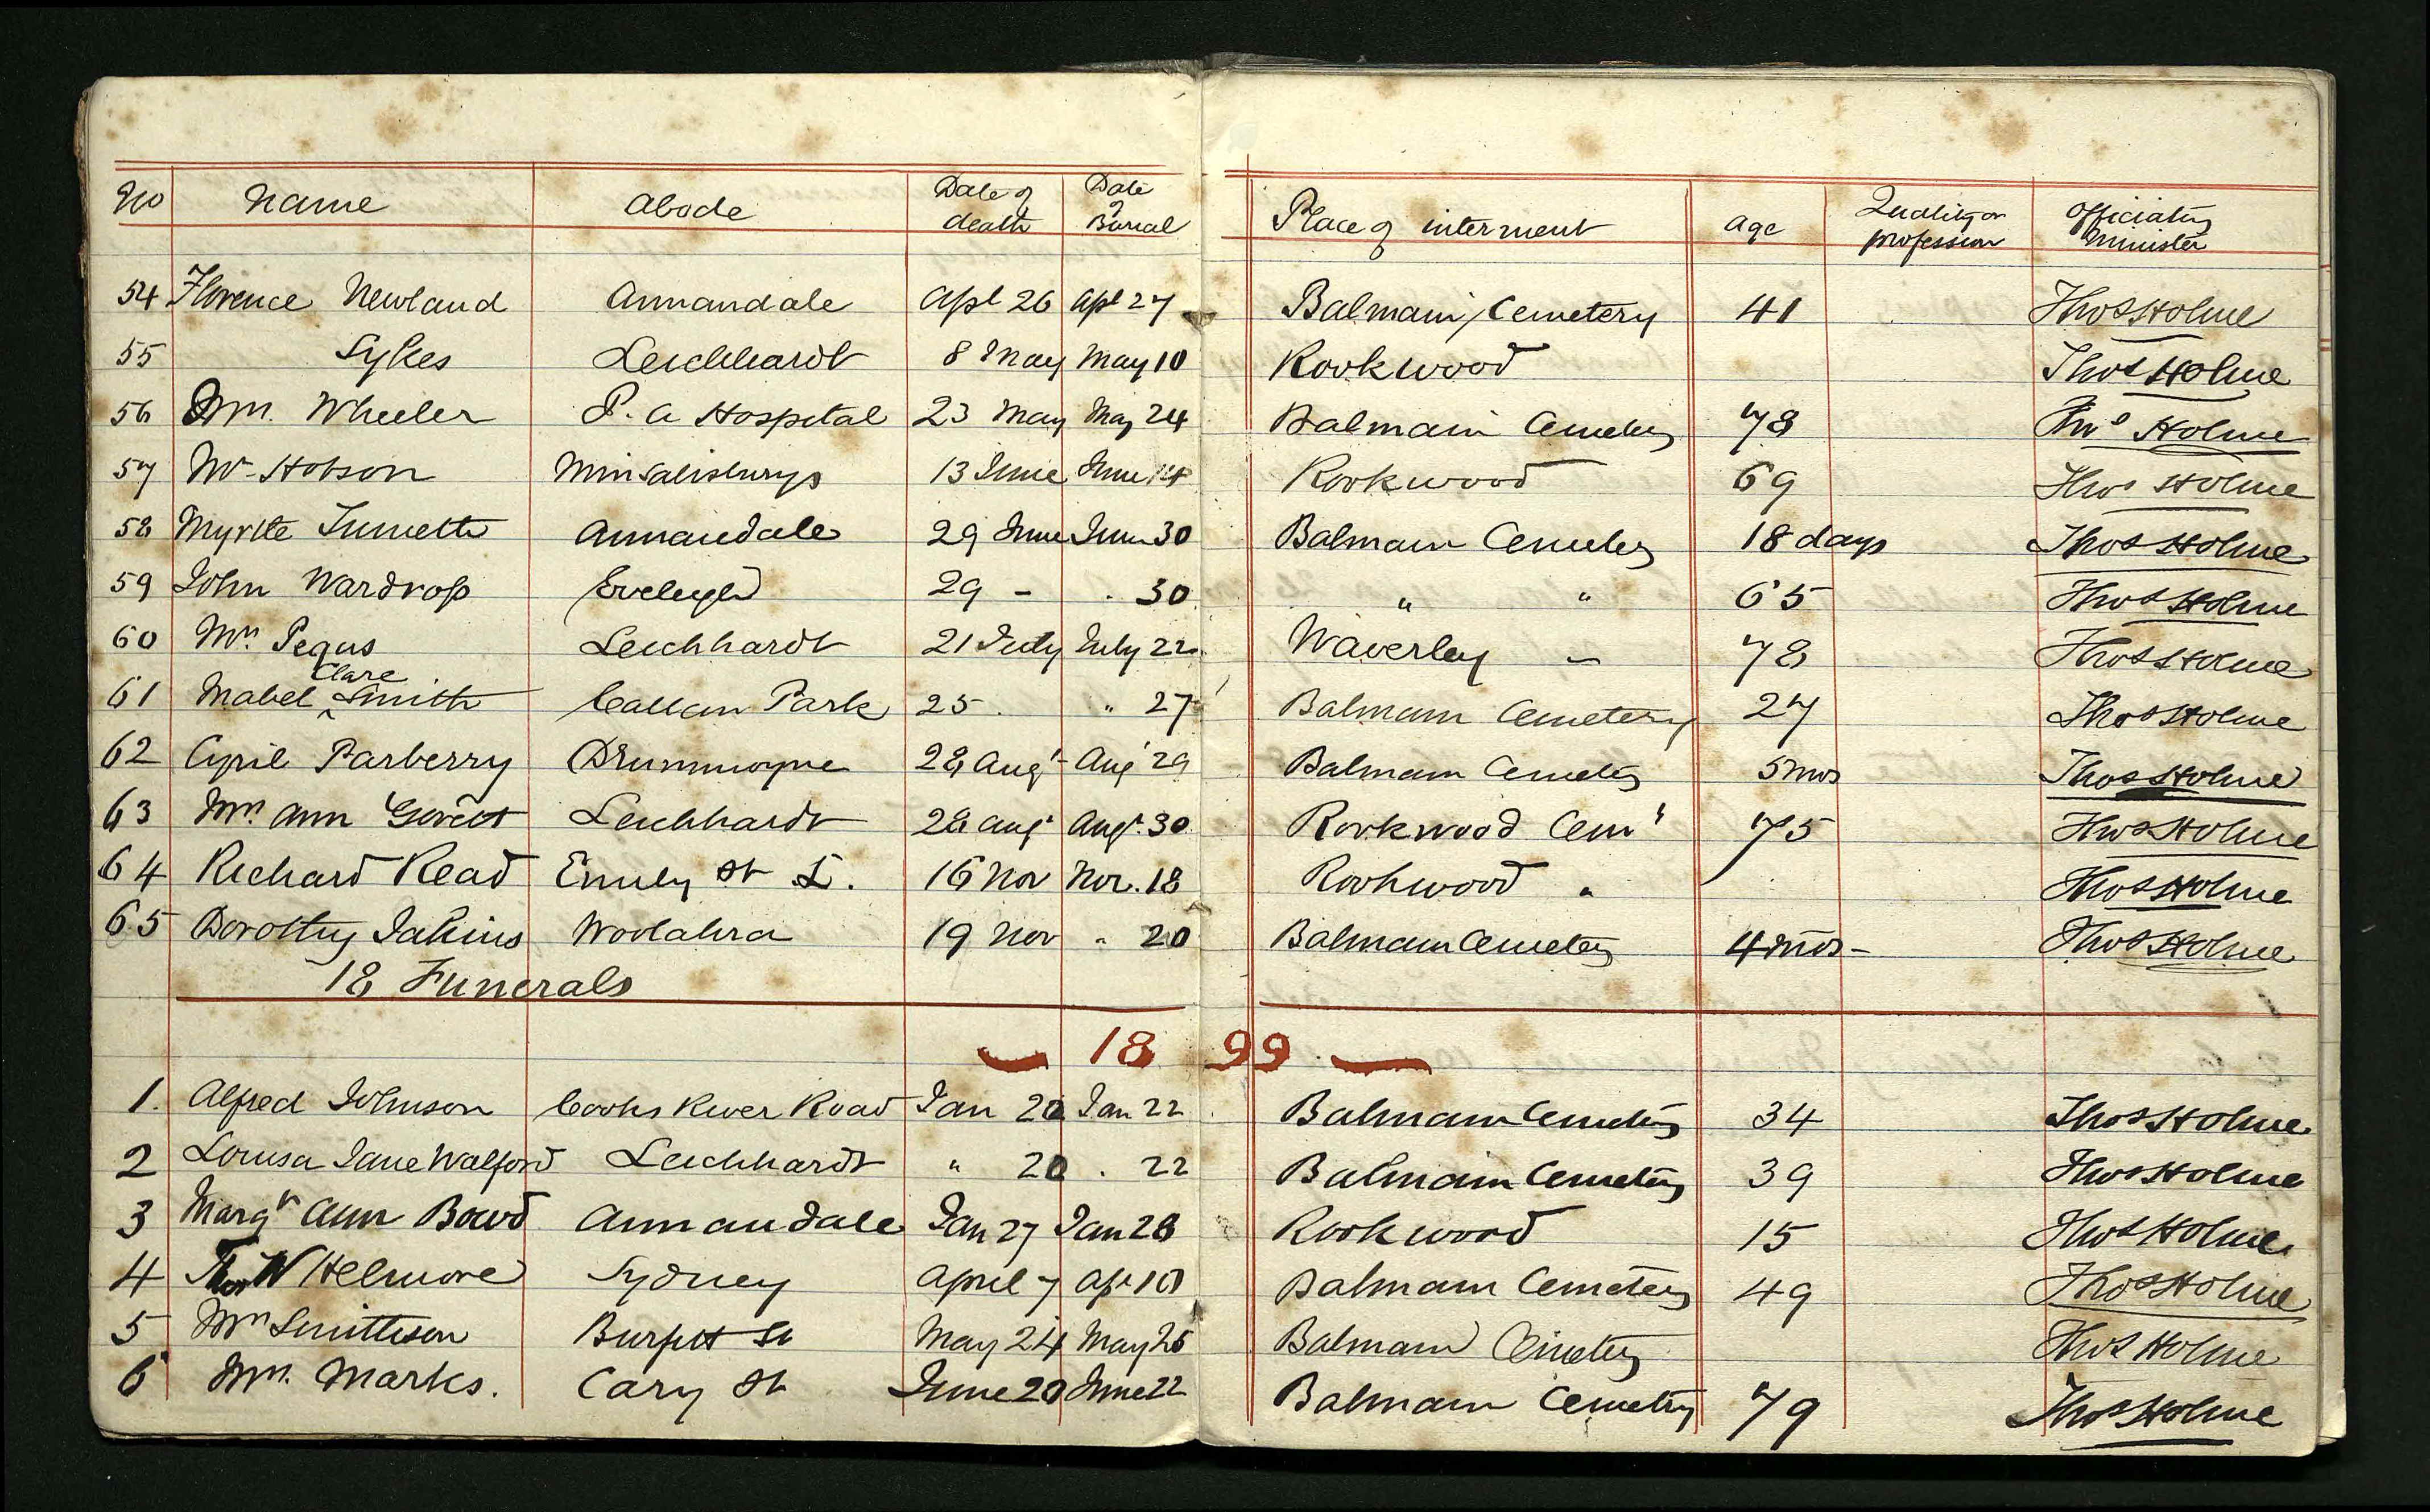 No Name Abode Date of death Date of Burial Place of interment age Quality or profession Officiating Minister
54 Florence Newland Annandale Apl 26 Apl 27 Balmain Cemetery 41 Thos Holme
55 Sykes Leichhardt 8 May May 10 Rookwood Thos Holme
56 Wm. Wheeler P. A Hospital 23 May May 24 Balmain Cemetery 78 Thos Holme
57 Mr Hobson 13 June June 14 Rookwood 69 Thos Holme
58 Myrtle Annandale 29 June June 30 Balmain Cemetery 18 days Thos Holme
59 John Wardrop Eveleigh 29 - " 30 " " 65 Thos Holme
60 Mrs. Pegus Leichhardt 21 July July 22 Waverley - 78 Thos Holme
61 Mabel Clare Smith Callan Park 25 " 27 Balmain Cemetery 27 Thos Holme
62 Cyril Parberry Drummoyne 28 Augt Augt 29 Balmain Cemetery 5 mos Thos Holme
63 Mrs. Ann Leichhardt 28 Augt Augt. 30 Rookwood Cemy 75 Thos Holme
64 Richard Read Emily St L. 16 Nov Nov. 18 Rookwood " Thos Holme
65 Dorothy Jakins Woolahra 19 Nov " 20 Balmain Cemetery 4 mos - Thos Holme
18 Funerals
— 1899 —
1. Alfred Johnson Cooks River Road Jan 20 Jan 22 Balmain Cemetery 34 Thos Holme
2 Louisa Jane Walford Leichhardt " 20 . 22 Balmain Cemetery 39 Thos Holme
3 Margt Ann Bowd Annandale Jan 27 Jan 28 Rookwood 15 Thos Holme
4 Thos W Helmore Sydney April 7 Apr 10 Balmain Cemetery 49 Thos Holme
5 Mrs Smitheson Burfitt St May 24 May 25 Balmain Cemetery Thos Holme
6 Mrs. Marks. Cary St June 20 June 22 Balmain Cemetery 79 Thos Holme